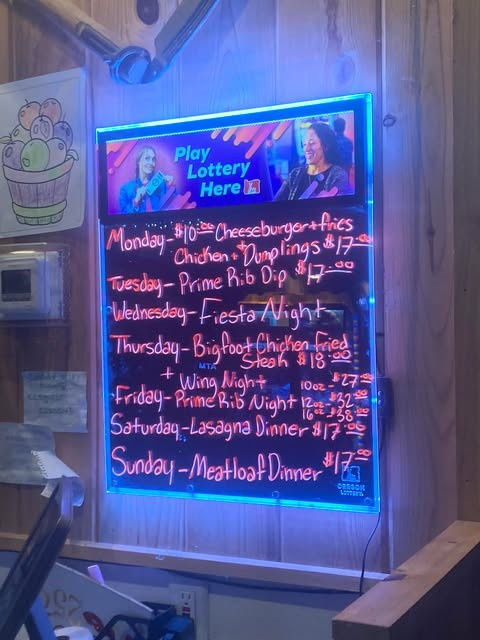 Play
Lottery
Here
Monday - $10.00 Cheeseburger + fries
Chicken + Dumplings $17.00
Tuesday - Prime Rib Dip $17.00
Wednesday - Fiesta Night
Thursday - Bigfoot Chicken Fried
Steak $18.00
+ Wing Night
10oz - $27.00
Friday - Prime Rib Night 12oz - $32.00
16oz - $38.00
Saturday - Lasagna Dinner $17.00
Sunday - Meatloaf Dinner $17.00
OREGON
LOTTERY